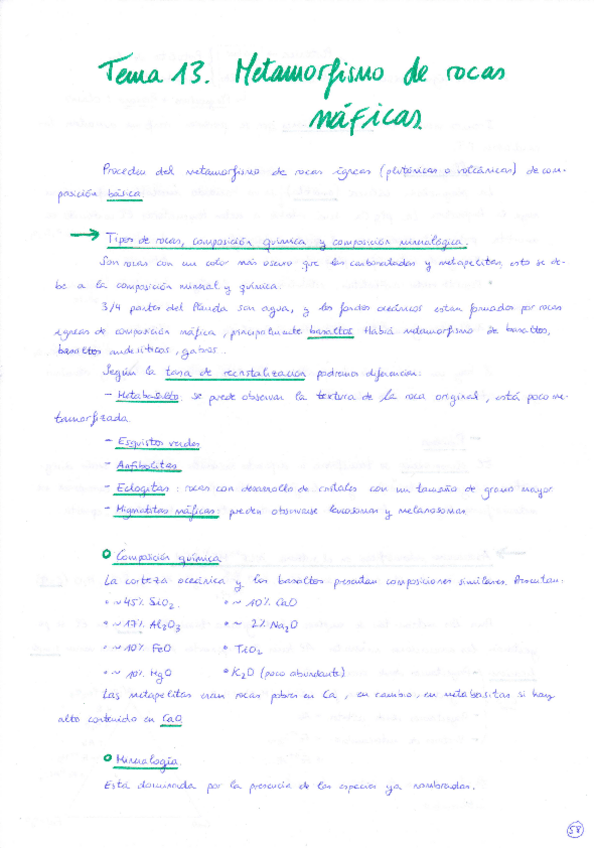 Tema 13. Metamorfismo de rocas
máficas.
Proceden del metamorfismo de rocas ígneas (plutónicas o volcánicas) de com-
posición básica
→ Tipos de rocas, composición química y composición mineralógica.
Son rocas con un color más oscuro que las carbonatadas y metapelitas, esto se de-
be a la composición mineral y química.
3/4 partes del Planeta son agua, y los fondos oceánicos estan formados por rocas
ígneas de composición máfica, principalmente basaltos. Habrá metamorfismo de basaltos,
basaltos andesíticos, gabros...
Según la tasa de recristalización podremos diferenciar:
- Metabasalto: se puede observar la textura de la roca original, está poco me-
tamorfizada.
- Esquistos verdes
- Anfibolitas
- Eclogitas: rocas con desarrollo de cristales con un tamaño de grano mayor
- Migmatitas máficas: pueden observarse leucosomas y melanosomas
Composición química
La corteza oceánica y los basaltos presentan composiciones similares. Presentan:
• ~45% SiO₂. • ~ 10% CaO
• ~17% Al₂O₃ • ~ 2% Na₂O
• ~10% FeO • TiO₂
• ~ 10% MgO • K₂O (poco abundante)
Las metapelitas eran rocas pobres en Ca, en cambio, en metabasitas si hay
alto contenido en CaO
Mineralogía.
Está dominada por la presencia de las especies ya nombradas.
58